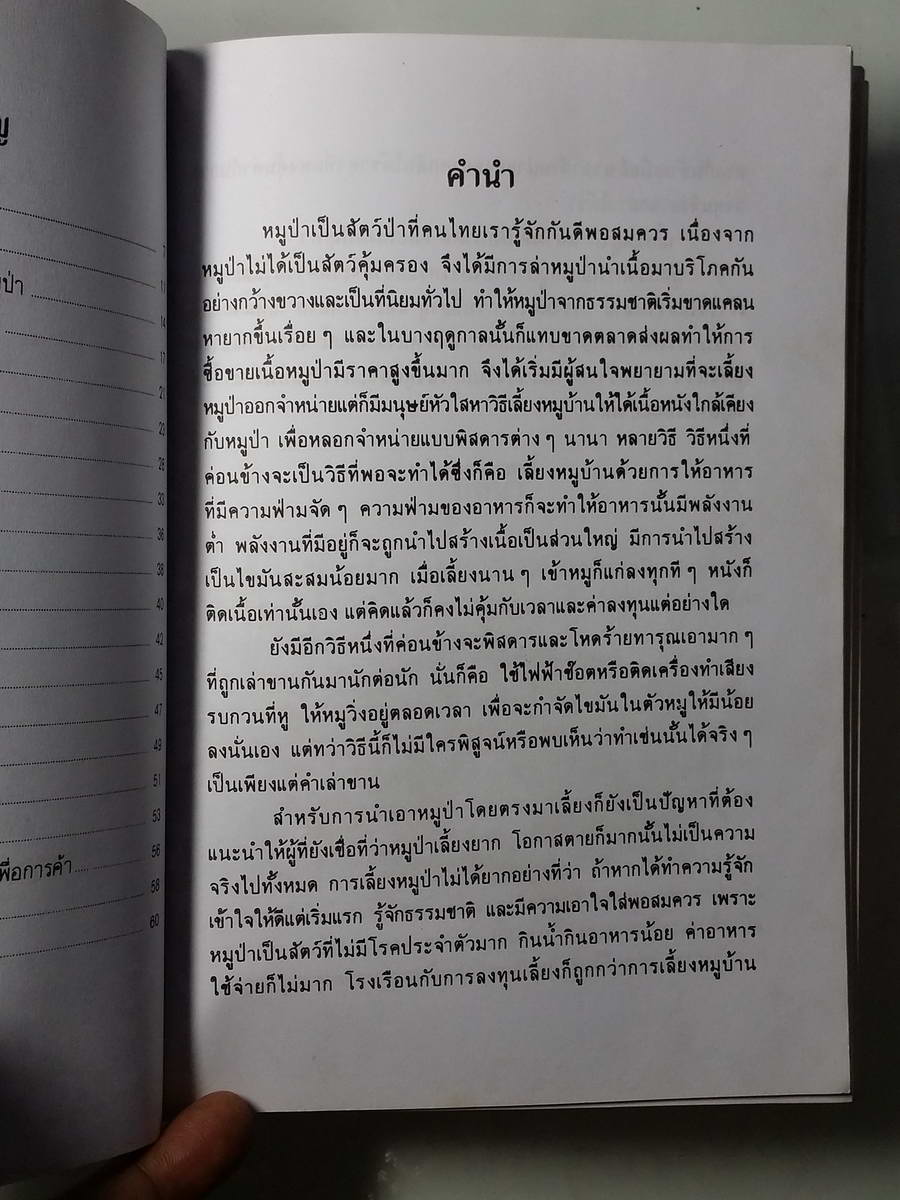 ญ
7
11
ป่า
14
17
21
23
28
33
36
38
40
42
45
47
49
51
53
พื่อการค้า
56
58
60
คำนำ
หมูป่าเป็นสัตว์ป่าที่คนไทยเรารู้จักกันดีพอสมควร เนื่องจาก
หมูป่าไม่ได้เป็นสัตว์คุ้มครอง จึงได้มีการล่าหมูป่านำเนื้อมาบริโภคกัน
อย่างกว้างขวางและเป็นที่นิยมทั่วไป ทำให้หมูป่าจากธรรมชาติเริ่มขาดแคลน
หายากขึ้นเรื่อย ๆ และในบางฤดูกาลนั้นก็แทบขาดตลาดส่งผลทำให้การ
ซื้อขายเนื้อหมูป่ามีราคาสูงขึ้นมาก จึงได้เริ่มมีผู้สนใจพยายามที่จะเลี้ยง
หมูป่าออกจำหน่ายแต่ก็มีมนุษย์หัวใสหาวิธีเลี้ยงหมูบ้านให้ได้เนื้อหนังใกล้เคียง
กับหมูป่า เพื่อหลอกจำหน่ายแบบพิสดารต่าง ๆ นานา หลายวิธี วิธีหนึ่งที่
ค่อนข้างจะเป็นวิธีที่พอจะทำได้ซึ่งก็คือ เลี้ยงหมูบ้านด้วยการให้อาหาร
ที่มีความฟ่ามจัด ๆ ความฟ่ามของอาหารก็จะทำให้อาหารนั้นมีพลังงาน
ต่ำ พลังงานที่มีอยู่ก็จะถูกนำไปสร้างเนื้อเป็นส่วนใหญ่ มีการนำไปสร้าง
เป็นไขมันสะสมน้อยมาก เมื่อเลี้ยงนาน ๆ เข้าหมูก็แก่ลงทุกที ๆ หนังก็
ติดเนื้อเท่านั้นเอง แต่คิดแล้วก็คงไม่คุ้มกับเวลาและค่าลงทุนแต่อย่างใด
ยังมีอีกวิธีหนึ่งที่ค่อนข้างจะพิสดารและโหดร้ายทารุณเอามาก ๆ
ที่ถูกเล่าขานกันมานักต่อนัก นั่นก็คือ ใช้ไฟฟ้าช๊อตหรือติดเครื่องทำเสียง
รบกวนที่หู ให้หมูวิ่งอยู่ตลอดเวลา เพื่อจะกำจัดไขมันในตัวหมูให้มีน้อย
ลงนั่นเอง แต่ทว่าวิธีนี้ก็ไม่มีใครพิสูจน์หรือพบเห็นว่าทำเช่นนั้นได้จริง ๆ
เป็นเพียงแต่คำเล่าขาน
สำหรับการนำเอาหมูป่าโดยตรงมาเลี้ยงก็ยังเป็นปัญหาที่ต้อง
แนะนำให้ผู้ที่ยังเชื่อที่ว่าหมูป่าเลี้ยงยาก โอกาสตายก็มากนั้นไม่เป็นความ
จริงไปทั้งหมด การเลี้ยงหมูป่าไม่ได้ยากอย่างที่ว่า ถ้าหากได้ทำความรู้จัก
เข้าใจให้ดีแต่เริ่มแรก รู้จักธรรมชาติ และมีความเอาใจใส่พอสมควร เพราะ
หมูป่าเป็นสัตว์ที่ไม่มีโรคประจำตัวมาก กินน้ำกินอาหารน้อย ค่าอาหาร
ใช้จ่ายก็ไม่มาก โรงเรือนกับการลงทุนเลี้ยงก็ถูกกว่าการเลี้ยงหมูบ้าน